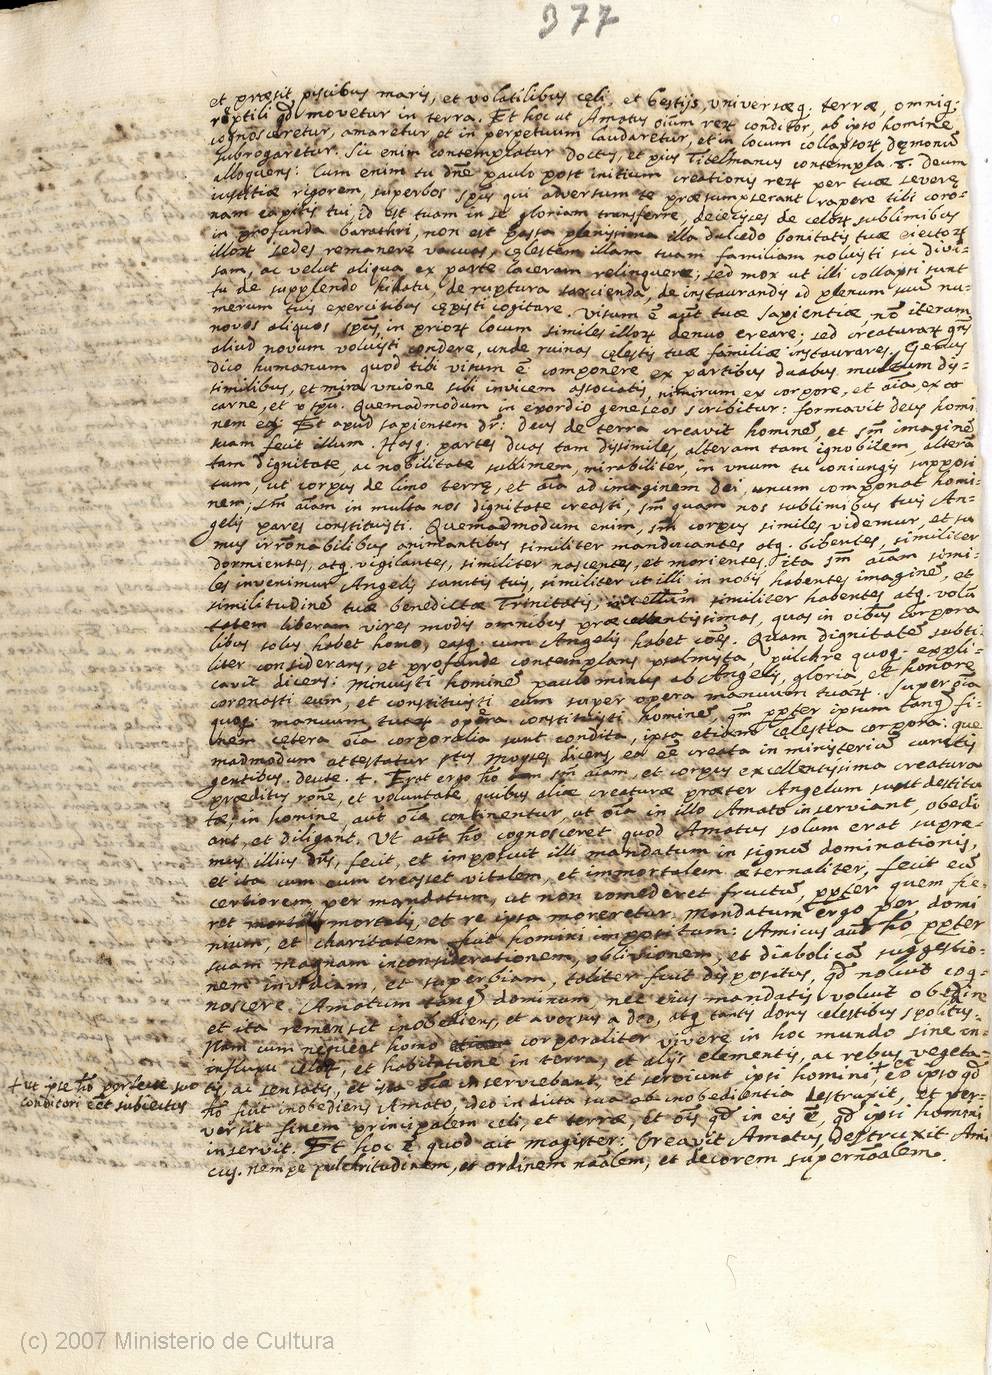 377
et præsit piscibus maris, et volatilibus cęli, et bestijs, universæq. terræ, omniq;
reptili qd movetur in terra. Et hoc ut Amatus oium rerꝝ conditor, ab ipso homine
cognosceretur, amaretur, et in perpetuum laudaretur, et in locum collapsorꝝ dęmonũ
subrogaretur. Sic enim contemplatur doctus, et pius Titelmanus contempla. 8. deum
alloquens: Cum enim tu dñe paulo post initium creationis rerꝝ per tuæ severę
iustitiæ rigorem, superbos spũs qui adversum te præsumpserant rapere tibi coro-
nam capitis tui, id est tuam in se gloriam transferre, deiecisses de celorꝝ sublimibus
in profunda barathri, non est passa plenissima illa dulcedo bonitatis tuæ eiectorꝝ
illorꝝ sedes remanere vacuas, cęlestem illam tuam familiam noluisti sic divi-
sam, ac velut aliqua ex parte laceram relinquere; sed mox ut illi collapsi sunt
tu de supplendo hiatu, de ruptura sarcienda, de instaurandis ad plenum suũ nu-
merum tuis exercitibus cępisti cogitare. Visum ẽ aũt tuæ sapientiæ nõ iterum
novos aliquos spũs, in priorꝝ locum similes illorꝝ denuo creare; sed creaturarꝝ gñs
aliud novum voluisti condere, unde ruinas cęlestis tuæ familiæ instaurares. Genus
dico humanum quod tibi visum ẽ componere ex partibus duabus multum dis-
similibus, et mira vnione sibi invicem associatis, nimirum ex corpore, et aĩa ex
carne, et spũ. Quemadmodum in exordio geneseos scribitur: formavit deus homi
nem Et apud sapientem dr: deus de terra creavit hominẽ, et sm̃ imaginẽ
suam fecit illum. Hasq; partes duas tam dissimiles, alteram tam ignobilem, alterã
tam dignitate, ac nobilitate sublimem, mirabiliter, in vnum tu coniungis supposi
tum, ut corpus de limo terrę, et aĩa ad imaginem dei, unum componat homi-
nem; sm̃ aĩam in multa nos dignitate creasti, sm̃ quam nos sublimibus tuis An-
gelis pares constituisti. Quemadmodum enim, sm̃ corpus similes videmur, et su
mus irrõnabilibus animantibus similiter manducantes atq. bibentes, similiter
dormientes, atq. vigilantes, similiter nascentes, et morientes. Ita sm̃ aĩam simi-
les invenimur Angelis sanctis tuis, similiter ut illi in nobis habentes imaginẽ, et
similitudinẽ tuæ benedictæ Trinitatis, intellũm similiter habentes atq. volũ
tatem liberam vires modis omnibus præcellentissimas, quas in oĩbus corpora
libus solus habet homo, easq. cum Angelis habet cões. Quam dignitatẽ subti
liter considerans, et profunde contemplans psalmista, pulchre quoq. expli-
cavit dicens: Minuisti hominẽ paulo minus ab Angelis, gloria, et honore
coronasti eum, et constituisti eum super opera manuum tuarꝝ. Super oĩa
quoq. manuum tuarꝝ opera constituisti hominẽ, qm̃ ppter ipsum tanq̃ fi-
nem cętera oĩa corporalia sunt condita, ipsa etiam celestia corpora: que
madmodum attestatur stus Moyses dicens ea eẽ creata in ministeriũ cunctis
gentibus. deute. 4. Erat ergo hõ sm̃ aĩam, et corpus excellentissima creatura
præditus rõne, et voluntate, quibus aliæ creaturæ præter Angelum sunt destitu
tæ, in homine aut oĩa continentur, ut oĩa in illo Amato inserviant, obedi
ant, et diligant. Ut aũt hõ cognosceret quod Amatus solum erat supre-
mus illius dñs, fecit, et imposuit illi mandatum in signũ dominationis,
et ita cum eum creasset vitalem, et immortalem æternaliter, fecit eũ
certiorem per mandatum, ut non comederet fructũ, ppter quem fie-
ret mortalis, et re ipsa moreretur. Mandatum ergo per domi
nium, et charitatem fuit homini impositum: Amicus aũt hõ ppter
suam magnam inconsiderationem, oblivionem, et diabolicã suggestio-
nem invidiam, et superbiam, taliter fuit dispositus, qd noluit cog-
noscere Amatum tanq̃ dominum, nec eius mandatis voluit obedire
et ita remansit inobediens, et aversus a deo, atq tantis donis celestibus spolitus.
Nam cum nequeat homo corporaliter vivere in hoc mundo sine in-
fluxu celorꝝ, et habitatione in terra, et alijs elementis, ac rebus vegeta-
tis, ac sensatis, et ista oĩa inserviebant, et serviunt ipsi homini, + eo ipso qd
hõ fuit inobediens Amato, ideo in dicta sua inobedientia destruxit, et per-
versit finem principalem celi, et terræ, et oĩs qd in eis ẽ, qd ipsi homini
inservit. Et hoc ẽ quod ait magister: Creavit Amatus, destruxit Ami
cus. nempe pulchritudinem, et ordinem nãalem, et decorem supernãalem.
+ ut ipse hõ perfecte suo
conditori eẽt subiectus
(c) 2007 Ministerio de Cultura